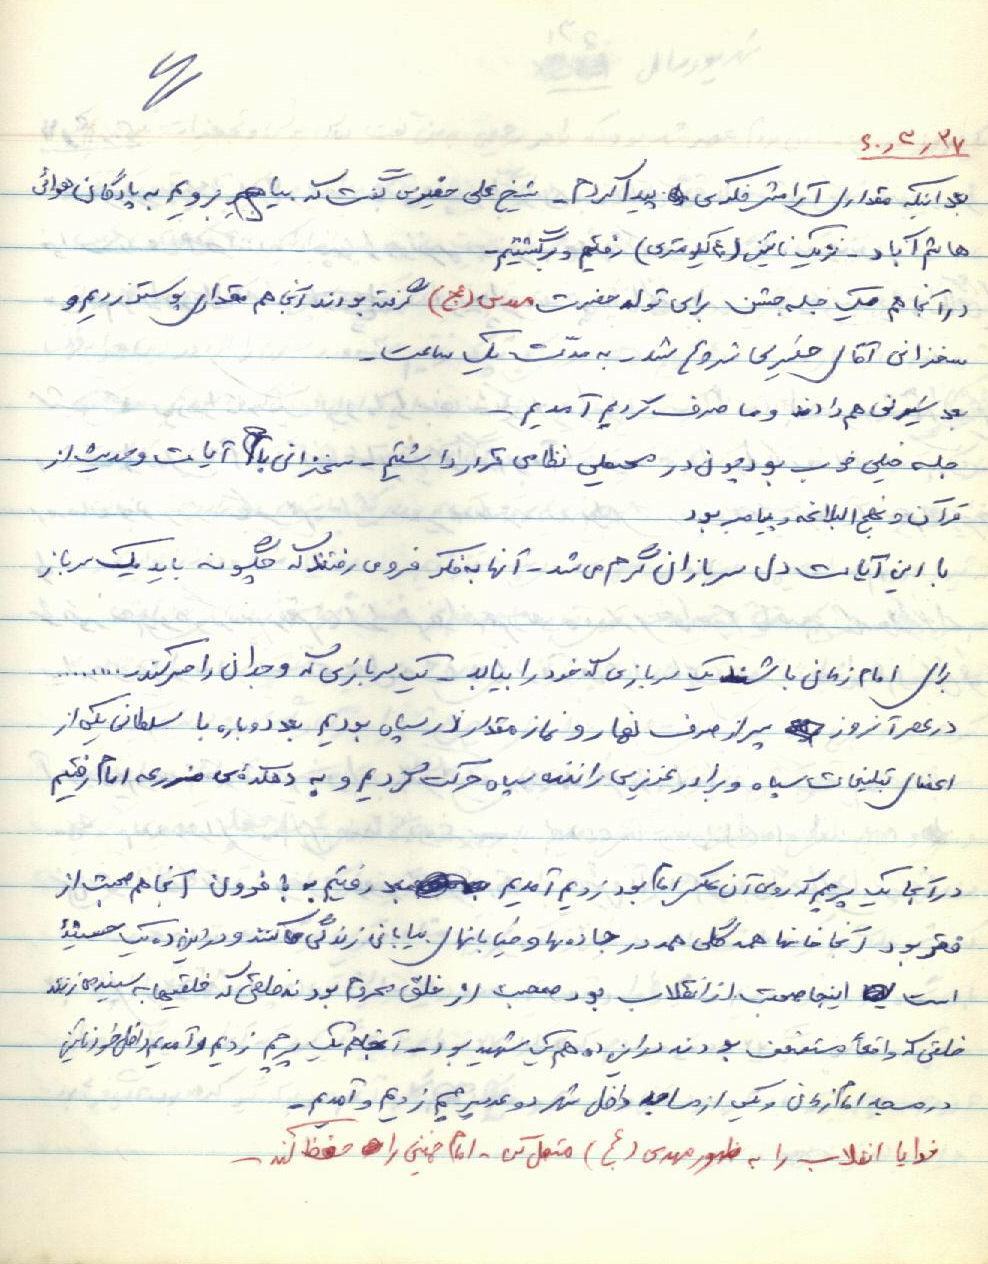 ۶۰٫۳٫۲۷
بعد اینکه مقداری آرامش فکری پیدا کردم - شیخ علی حقیری گفت که بیا برویم به پادگان هوائی
هاشم آباد - نزدیک نائین (۶ کیلومتری) رفتیم و برگشتیم -
در آنجا هم یک جلسه جشن برای تولد حضرت مهدی (عج) گرفته بودند آنجا هم مقداری پوستر زدیم و
سخنرانی آقای حقیری شروع شد - به مدت یک ساعت -
بعد شیرینی هم دادند و ما صرف کردیم آمدیم -
جلسه خیلی خوب بود چون در محیطی نظامی قرار داشتیم - سخنرانی با آیات و حدیث از
قرآن و نهج البلاغه و پیامبر بود
با این آیات دل سربازان گرم می شد - آنها به فکر فرو می رفتند که چگونه باید یک سرباز
برای امام زمانی باشند یک سربازی که خود را بیابد - یک سربازی که وجدانی را حس کند .......
در عصر آنروز پس از صرف نهار و نماز مقدار در سپاه بودیم بعد دوباره با سلطانی یکی از
اعضای تبلیغات سپاه و برادر عزیزی راننده سپاه حرکت کردیم و به دهکده‌ی مزرعه امام رفتیم
در آنجا یک پرچم که روی آن عکس امام بود زدیم آمدیم بعد رفتیم به فرون آنجا هم صحبت از
فقر بود آنجا خانها همه گلی همه در جاده‌ها و خیابانهای بیابانی زندگی می کنند و در این ده یک
است اینجا صحبت از انقلاب بود صحبت از خلق محروم بود نه خلقی که خلقیها به سینه می زنند
خلقی که واقعاً مستضعف بودند در این ده هم یک شهید بود - آنجا هم یک پرچم زدیم و آمدیم داخل خود نائین
در مسجد امام زمانی و یکی از مساجد داخل شهر دو عدد پرچم زدیم و آمدیم -
خدایا انقلاب را به ظهور مهدی (عج) متصل کن - امام خمینی را حفظ کند -